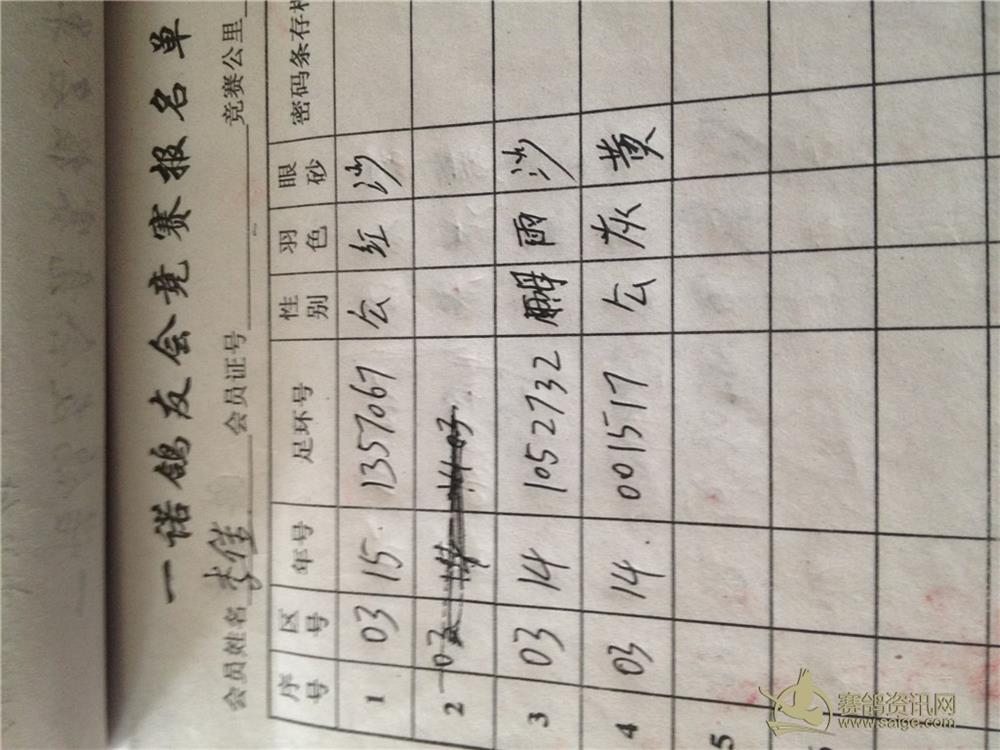 一诺鸽友会竞赛报名单
会员姓名 李 会员证号 竞赛公里
序号 区号 年号 足环号 性别 羽色 眼砂 密码条存根
1 03 15 1357067 公 红 沙
2 03
3 03 14 1052732 母 雨 沙
4 03 14 001517 公 灰 黄
5
赛鸽资讯网
www.saige.com